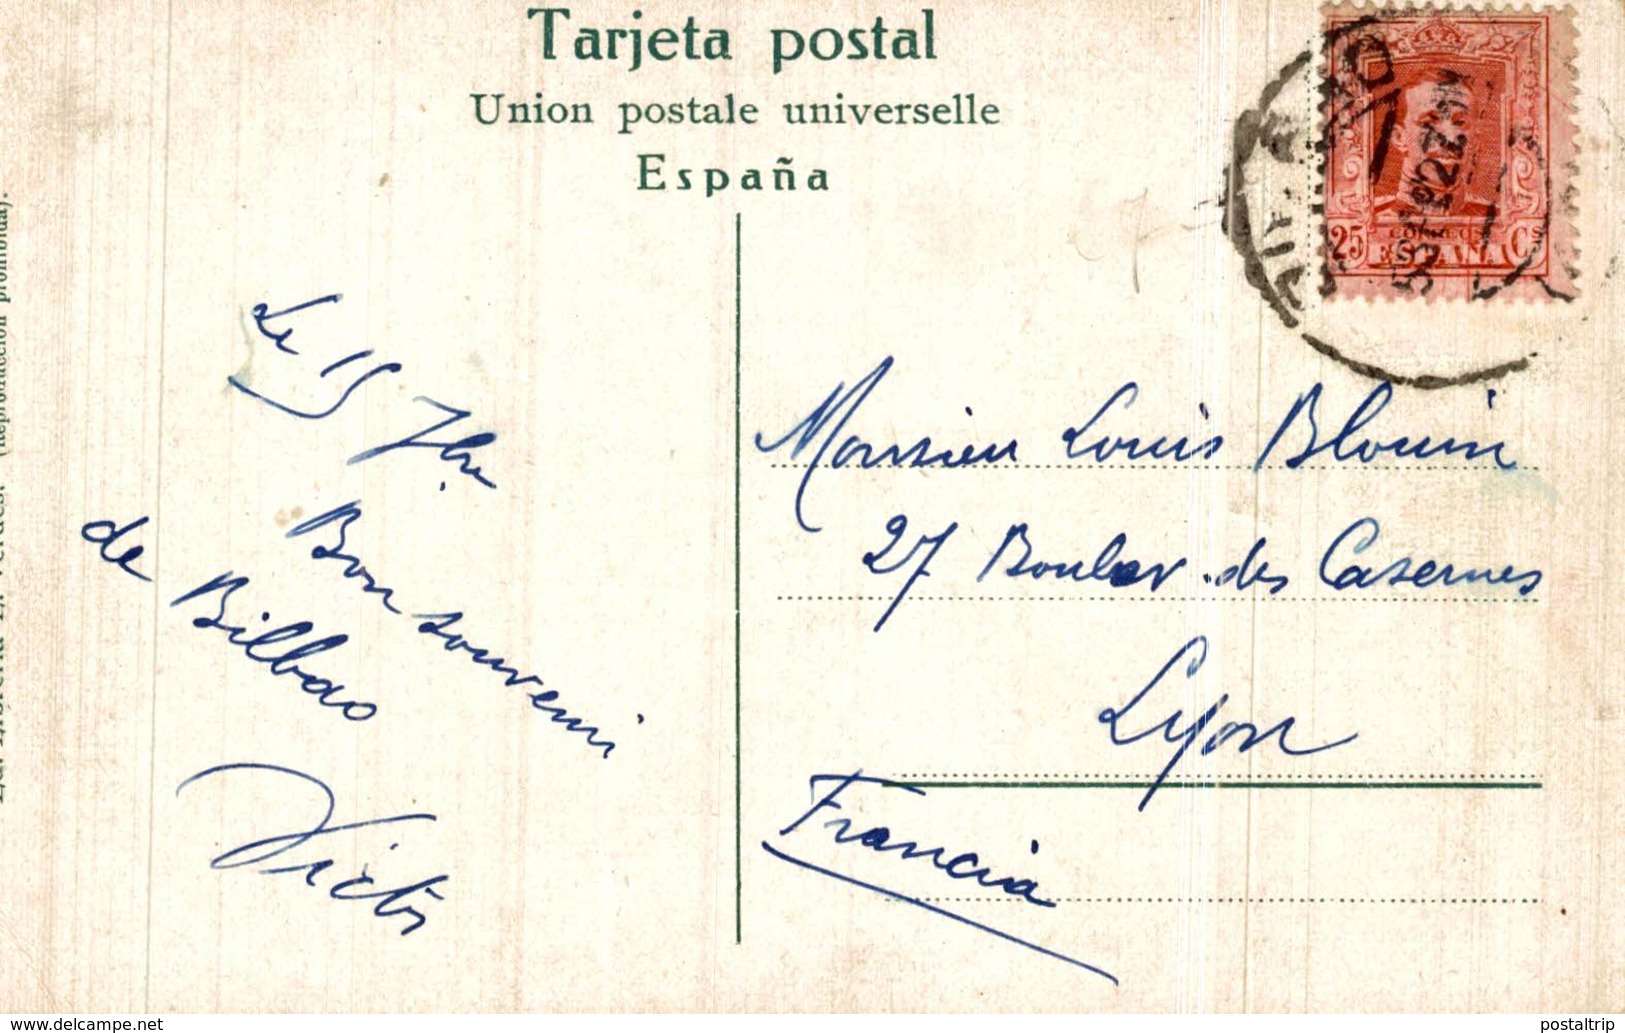 Tarjeta postal
Union postale universelle
España
25 Cs
CORREOS
ESPAÑA
BILBAO
Le 15 7bre
Bon souvenir
de Bilbao
Victor
Monsieur Louis Blouin
27 Boulev. des Casernes
Lyon
Francia
(Reproducción prohibida).
delcampe.net
postaltrip